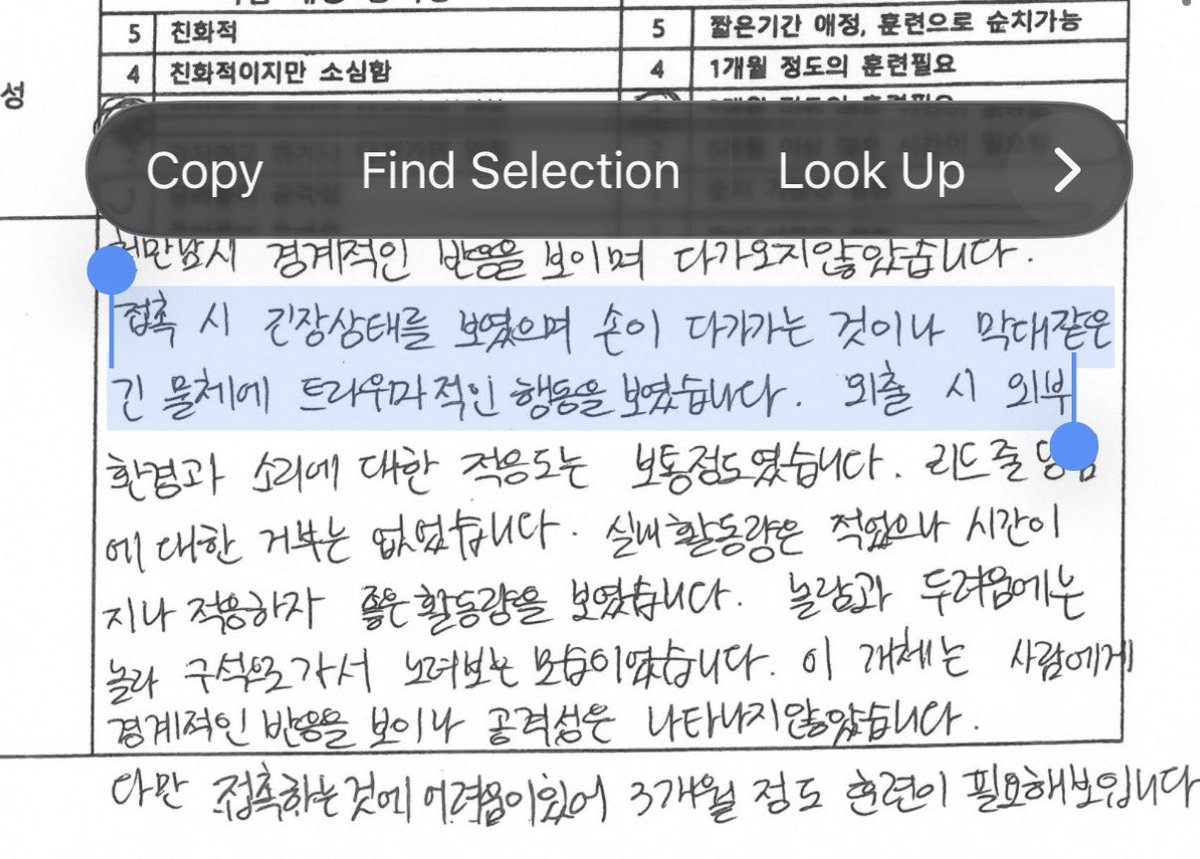 5 친화적 5 짧은기간 애정, 훈련으로 순치가능
4 친화적이지만 소심함 4 1개월 정도의 훈련필요
성
Copy Find Selection Look Up
경계적인 반응을 보이며 다가오지않았습니다.
접촉 시 긴장상태를 보였으며 손이 다가가는 것이나 막대같은
긴 물체에 트라우마적인 행동을 보였습니다. 외출 시 외부
환경과 소리에 대한 적응도는 보통정도였습니다. 리드줄
에 대한 거부는 없었습니다. 실내활동량은 적었으나 시간이
지나 적응하자 좋은활동량을 보였습니다. 놀람과 두려움에는
놀라 구석으로가서 노려보는 모습이였습니다. 이 개체는 사람에게
경계적인 반응을 보이나 공격성은 나타나지않았습니다.
다만 접촉하는것에 어려움이있어 3개월 정도 훈련이 필요해보입니다